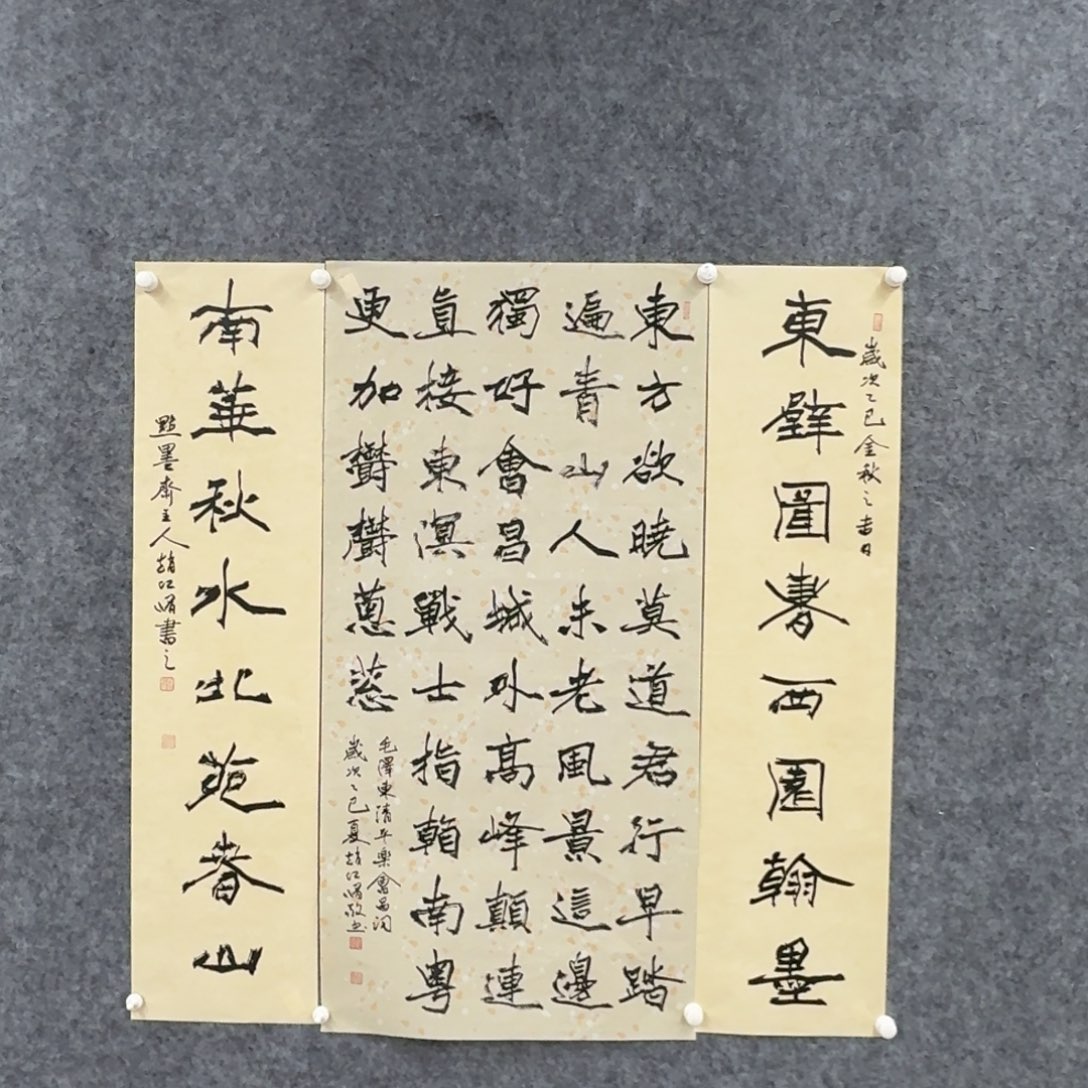 歲次乙巳金秋之吉日
東壁圖書西園翰墨
東方欲曉莫道君行早踏
遍青山人未老風景這邊
獨好會昌城外高峰顛連
直接東溟戰士指看南粵
更加鬱鬱蔥蔥
毛澤東清平樂會昌詞
歲次乙巳夏趙江敬書
南華秋水北苑春山
點墨齋主人趙江書之